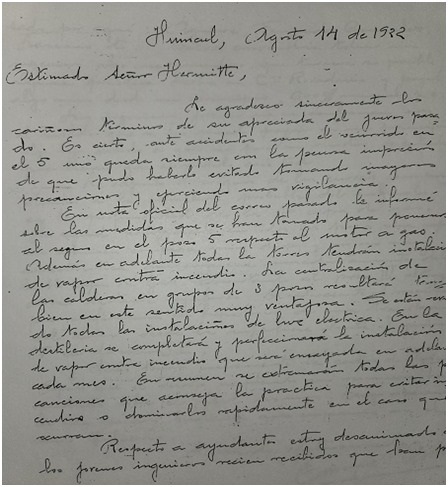 Huincul, Agosto 14 de 1922
Estimado Señor Hermitte,
Le agradezco sinceramente los
cariñosos términos de su apreciada del jueves pasa
do. Es cierto, ante accidentes como el ocurrido en
el 5 uno queda siempre con la penosa impresión
de que pudo haberlo evitado tomando mayores
precauciones y ejerciendo mas vigilancia.
En nota oficial del correo pasado le informé
sobre las medidas que se han tomado para poner
al seguro en el pozo 5 respecto al motor a gas.
Además en adelante todas las torres tendrán instalación
de vapor contra incendio. La centralización de
las calderas, en grupos de 3 pozos resultará tam
bien en este sentido muy ventajosa. Se están
do todas las instalaciones de luz electrica. En la
destileria se completará y perfeccionará la instalación
de vapor contra incendio que será ensayada en adelan
cada mes. En resumen se extremarán todas las p
cauciones que aconseja la practica para evitar in
cendios o dominarlos rapidamente en el caso que
ocurran.
Respecto a ayudantes estoy desanimado
los jovenes ingenieros recien recibidos que han p